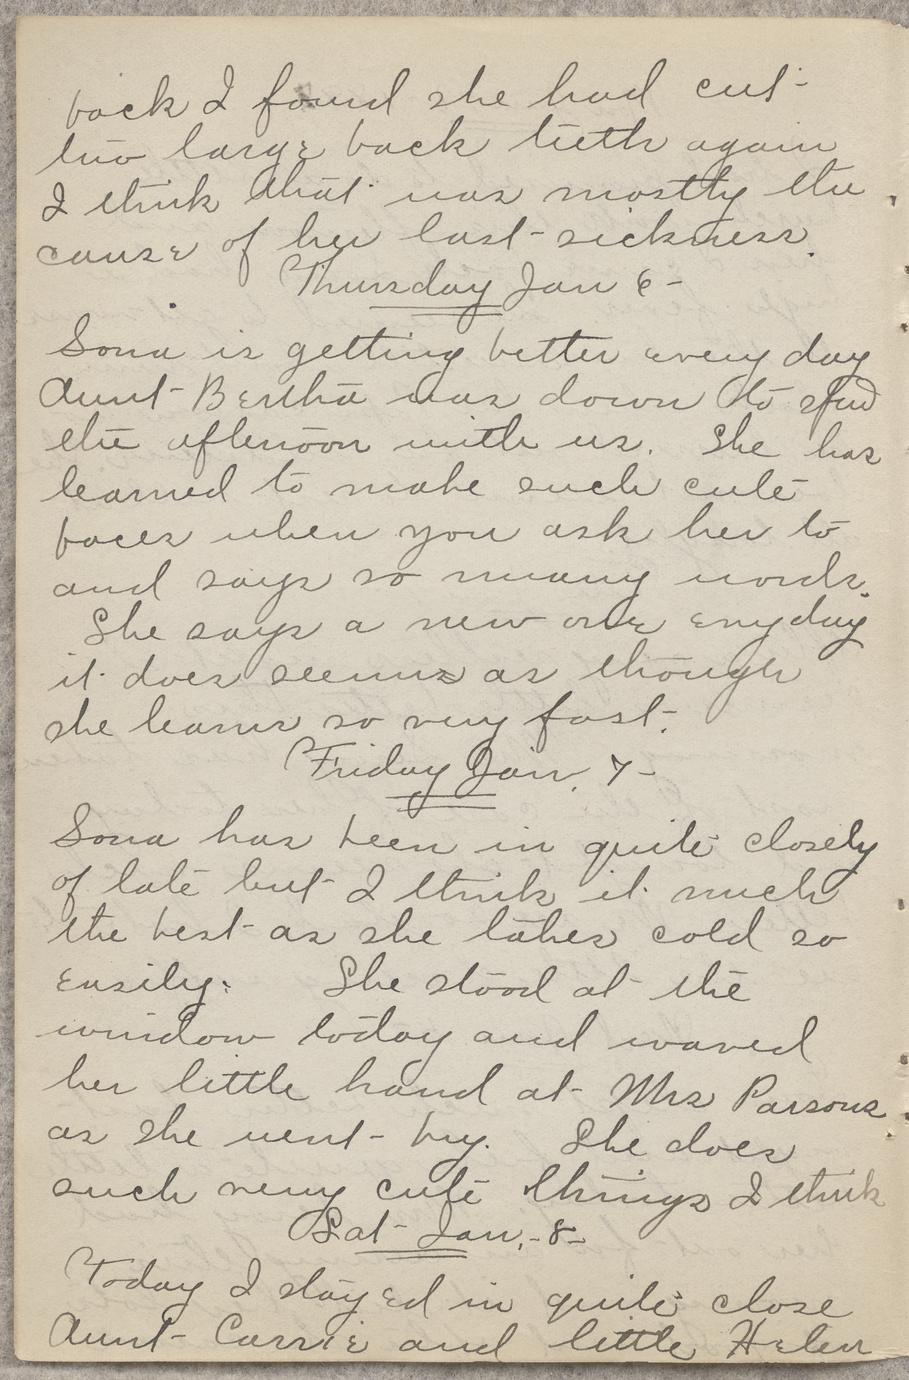 back I found she had cut
two large back teeth again
I think that was mostly the
cause of her last sickness.
Thursday Jan 6-
Sona is getting better every day
Aunt Bertha was down to spend
the afternoon with us. She has
learned to make such cute
faces when you ask her to
and says so many words.
She says a new one everyday
it does seems as though
she learns so very fast.
Friday Jan. 7-
Sona has been in quite closely
of late but I think it much
the best as she takes cold so
easily. She stood at the
window today and waved
her little hand at Mrs Parsons
as she went by. She does
such very cute things I think
Sat Jan. 8-
Today I stayed in quite close
Aunt Carrie and little Helen